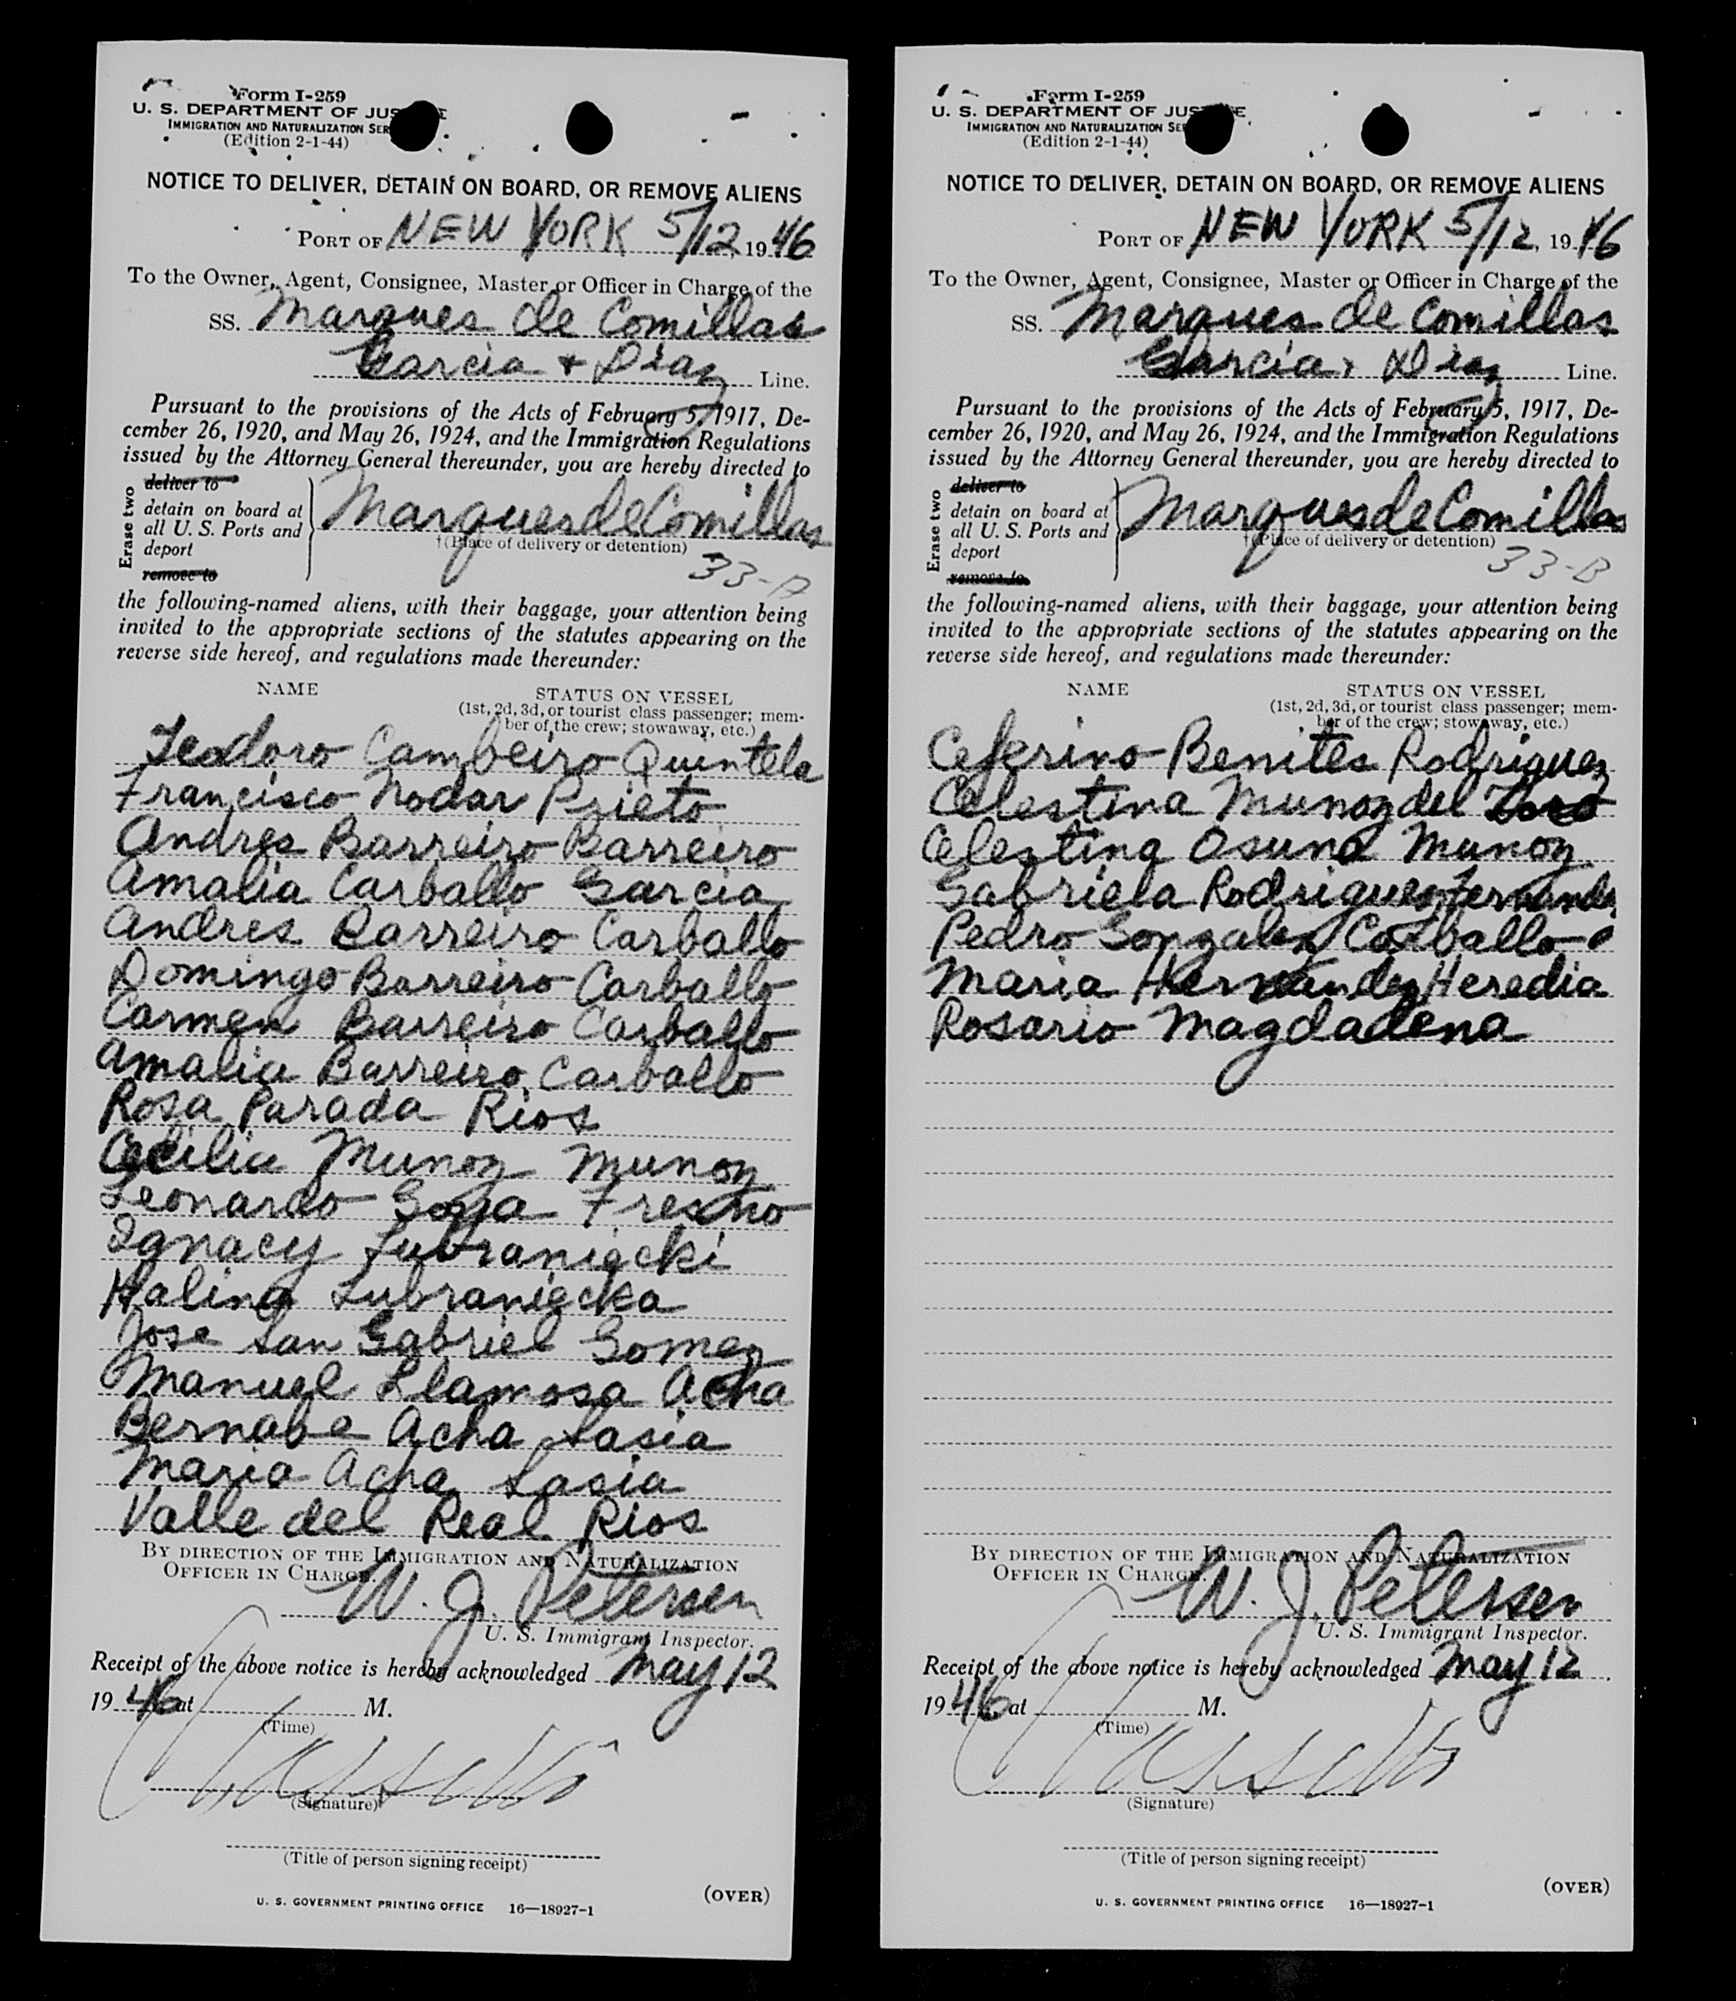 Form I-259
U. S. DEPARTMENT OF JUSTICE
IMMIGRATION AND NATURALIZATION SER
(Edition 2-1-44)
NOTICE TO DELIVER, DETAIN ON BOARD, OR REMOVE ALIENS
PORT OF NEW YORK 5/12, 1946
To the Owner, Agent, Consignee, Master or Officer in Charge of the
SS. Marques de Comillas
Garcia + Diaz Line.
Pursuant to the provisions of the Acts of February 5, 1917, De-
cember 26, 1920, and May 26, 1924, and the Immigration Regulations
issued by the Attorney General thereunder, you are hereby directed to
Erase two
deliver to
detain on board at
all U. S. Ports and
deport
remove to
Marques de Comillas
†(Place of delivery or detention)
33-A
the following-named aliens, with their baggage, your attention being
invited to the appropriate sections of the statutes appearing on the
reverse side hereof, and regulations made thereunder:
NAME
STATUS ON VESSEL
(1st, 2d, 3d, or tourist class passenger; mem-
ber of the crew; stowaway, etc.)
Teodoro Cambeiro Quintela
Francisco Nodar Prieto
Andres Barreiro Barreiro
Amalia Carballo Garcia
Andres Barreiro Carballo
Domingo Barreiro Carballo
Carmen Barreiro Carballo
Amalia Barreiro Carballo
Rosa Parada Rios
Cecilia Munoz Munoz
Leonardo Goya Fresno
Ignacy Lubraniecki
Halina Lubraniecka
Jose San Gabriel Gomez
Manuel Llamosa Acha
Bernabe Acha Lasia
Maria Acha Lasia
Valle del Real Rios
BY DIRECTION OF THE IMMIGRATION AND NATURALIZATION
OFFICER IN CHARGE.
W. J. Petersen
U. S. Immigrant Inspector.
Receipt of the above notice is hereby acknowledged May 12
1946 at M.
(Time)
(Signature)
(Title of person signing receipt)
(OVER)
U. S. GOVERNMENT PRINTING OFFICE 16—18927-1
Form I-259
U. S. DEPARTMENT OF JUSTICE
IMMIGRATION AND NATURALIZATION SE
(Edition 2-1-44)
NOTICE TO DELIVER, DETAIN ON BOARD, OR REMOVE ALIENS
PORT OF NEW YORK 5/12, 1946
To the Owner, Agent, Consignee, Master or Officer in Charge of the
SS. Marques de Comillas
Garcia + Diaz Line.
Pursuant to the provisions of the Acts of February 5, 1917, De-
cember 26, 1920, and May 26, 1924, and the Immigration Regulations
issued by the Attorney General thereunder, you are hereby directed to
Erase two
deliver to
detain on board at
all U. S. Ports and
deport
remove to
Marques de Comillas
†(Place of delivery or detention)
33-B
the following-named aliens, with their baggage, your attention being
invited to the appropriate sections of the statutes appearing on the
reverse side hereof, and regulations made thereunder:
NAME
STATUS ON VESSEL
(1st, 2d, 3d, or tourist class passenger; mem-
ber of the crew; stowaway, etc.)
Ceferino Benites Rodriguez
Celestina Munoz del Toro
Celestina Osuna Munoz
Gabriela Rodriguez Fernandez
Pedro Gonzalez Carballo
Maria Hernandez Heredia
Rosario Magdadena
BY DIRECTION OF THE IMMIGRATION AND NATURALIZATION
OFFICER IN CHARGE.
W. J. Petersen
U. S. Immigrant Inspector.
Receipt of the above notice is hereby acknowledged May 12
1946 at M.
(Time)
(Signature)
(Title of person signing receipt)
(OVER)
U. S. GOVERNMENT PRINTING OFFICE 16—18927-1